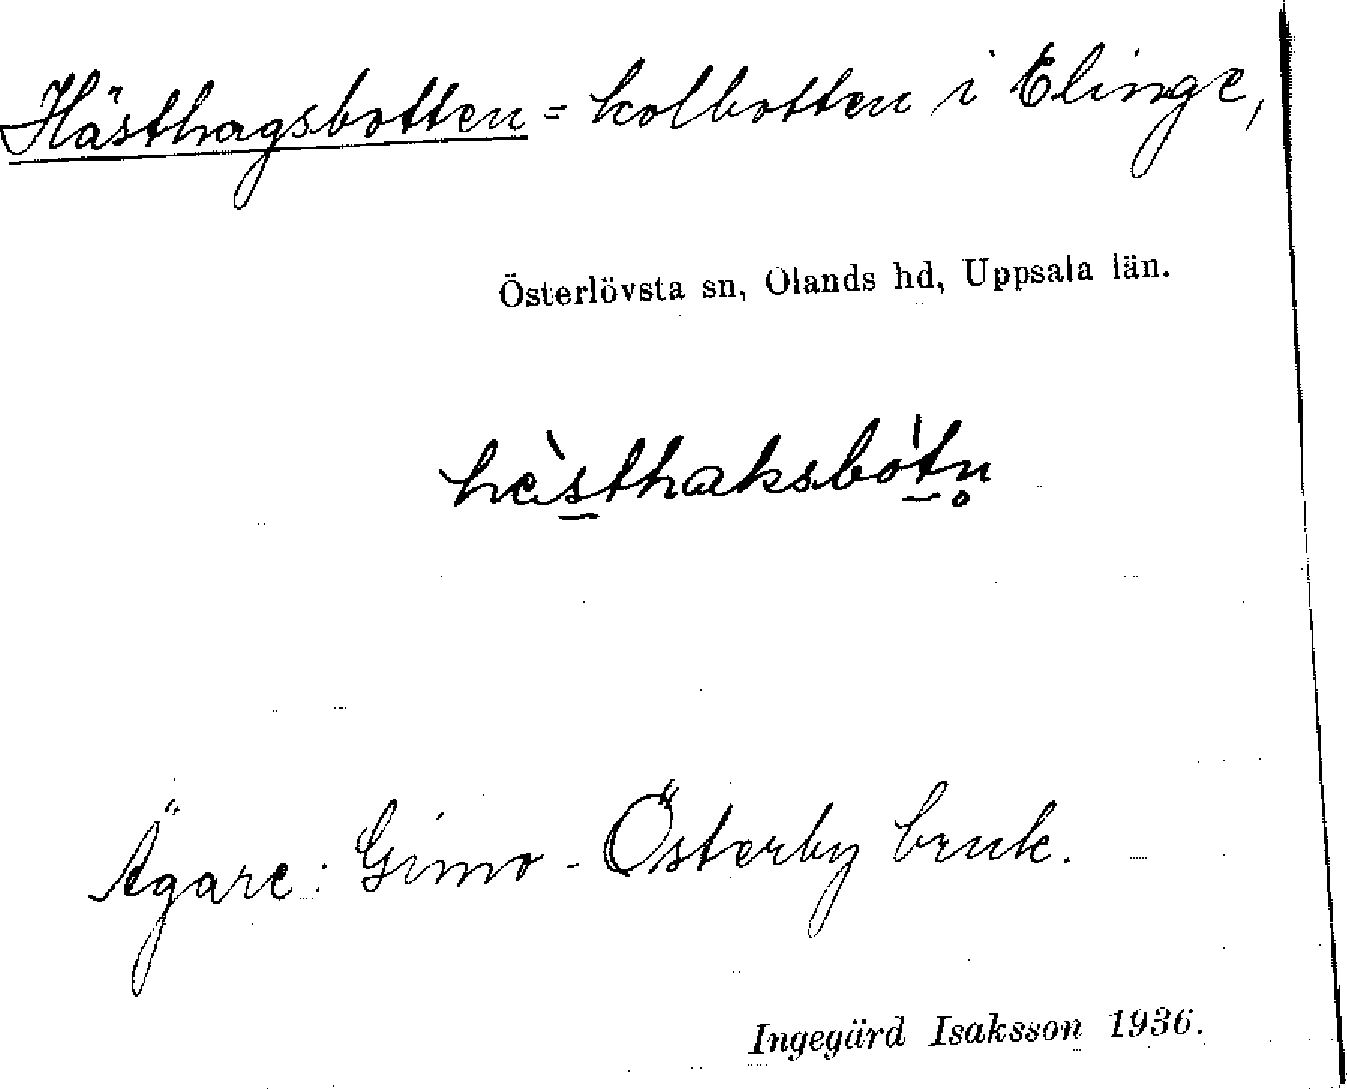 Hästhagsbotten = kolbotten i Elinge,
Österlövsta sn, Olands hd, Uppsala län.
hè̀s̱thaksbòṯn̥
Ägare: Gimo - Österby bruk.
Ingegärd Isaksson 1936.